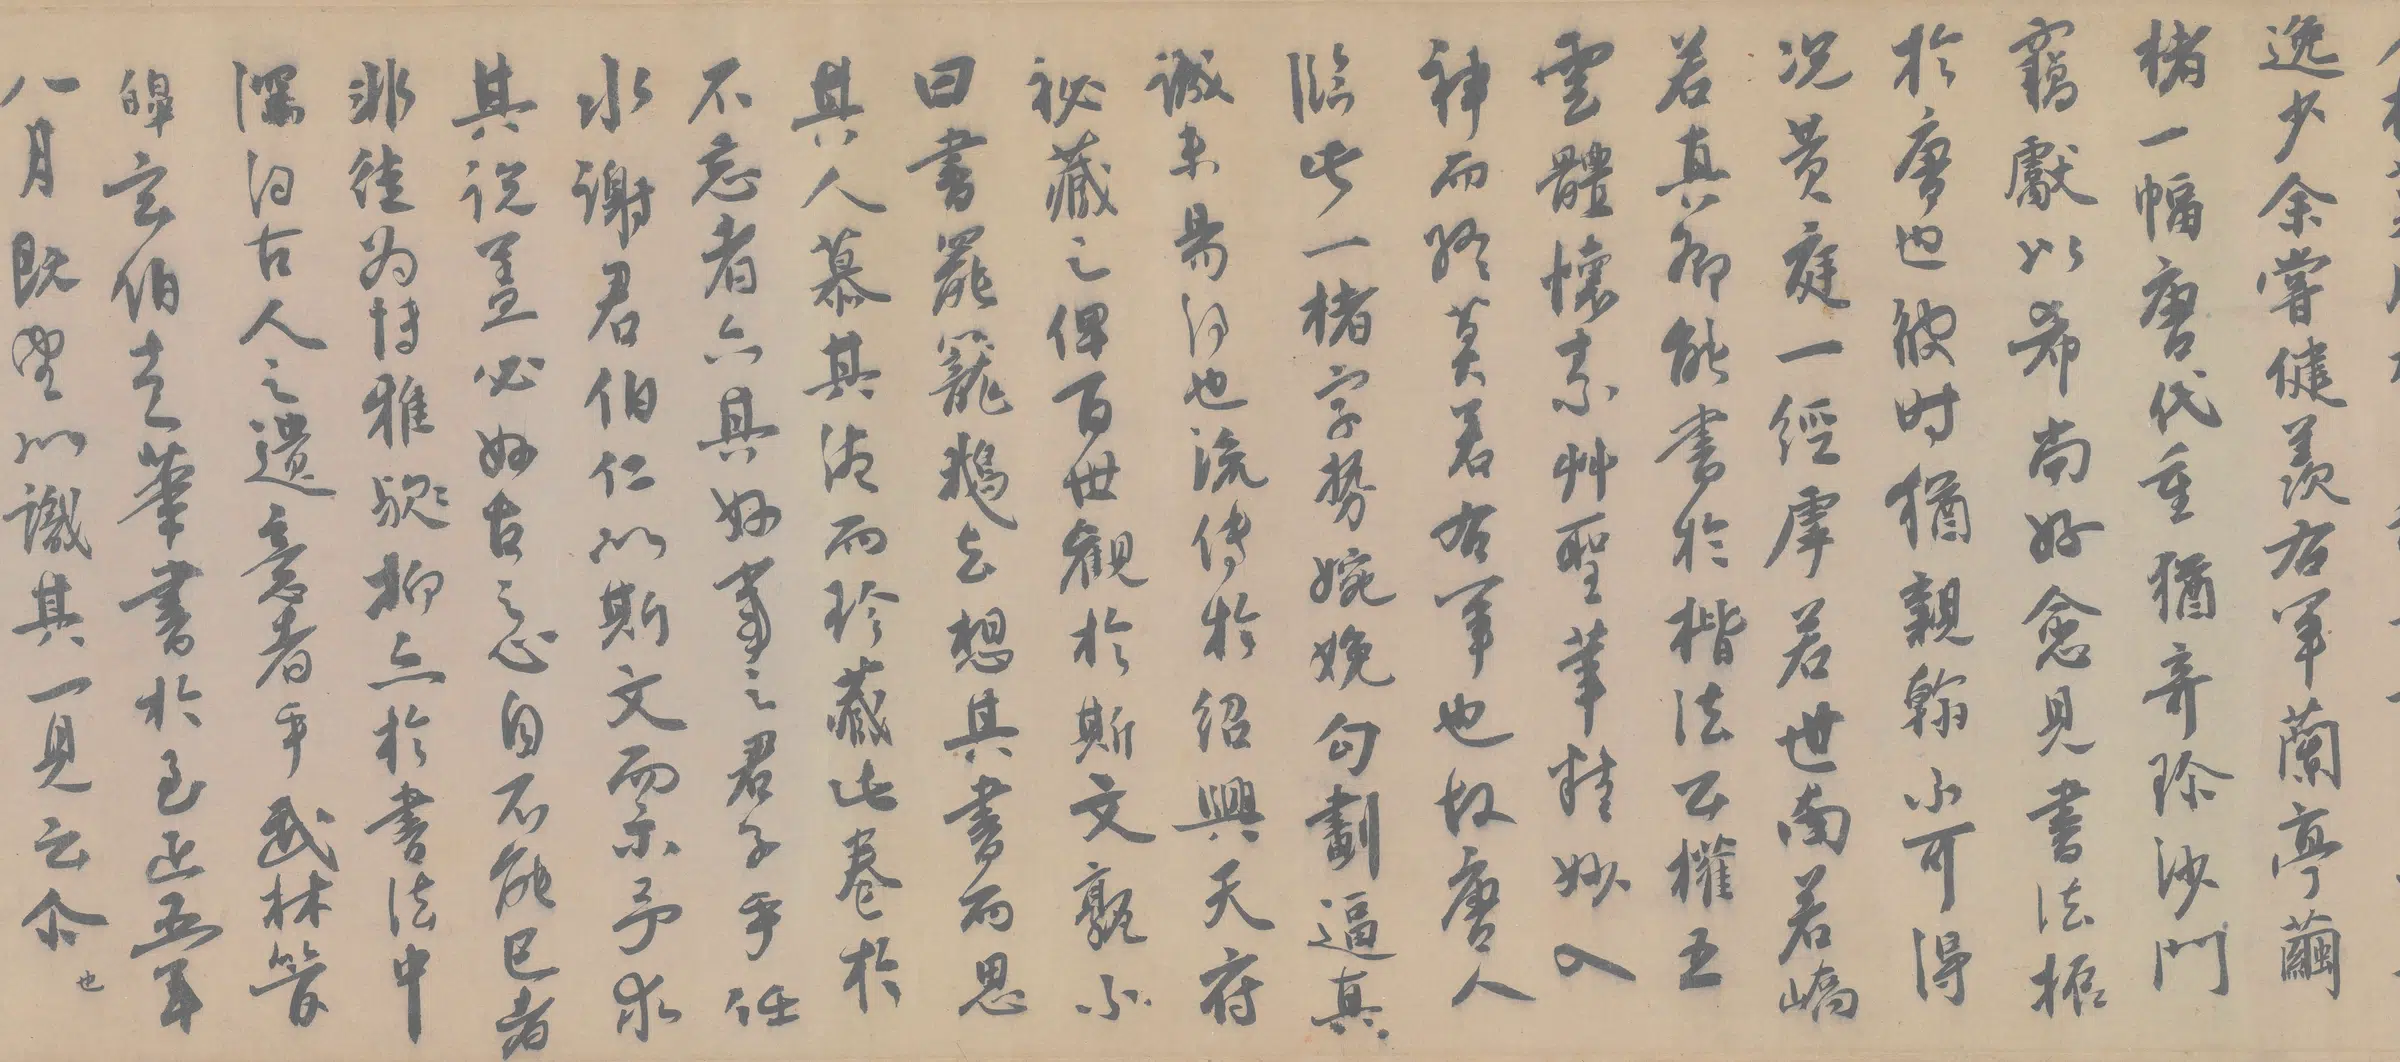 逸少余嘗健羨右軍蘭亭繭
楮一幅唐代重猶奇珍沙門
竊獻以希尚好愈見書法振
於唐也彼時猶親翰不可得
況黃庭一經虖若世南若嶠
若真卿能書於楷法公權五
雲體懷素艸聖筆精妙入
神而終莫若右軍也故唐人
臨此一楮字勢婉娩勾劃逼真
誠未易得也流傳於紹興天府
祕藏之俾百世觀於斯文孰不
曰書罷籠鵝去想其書而思
其人慕其法而珍藏此卷於
不忘者亦其好事之君子乎任
水謝君伯仁以斯文而示予求
其說蓋必好古之心自不能已者
非徒為博雅歟抑亦於書法中
深得古人之遺意者乎武林管
皞玄伯走筆書於至正五年
八月既望以識其一見云尒
也